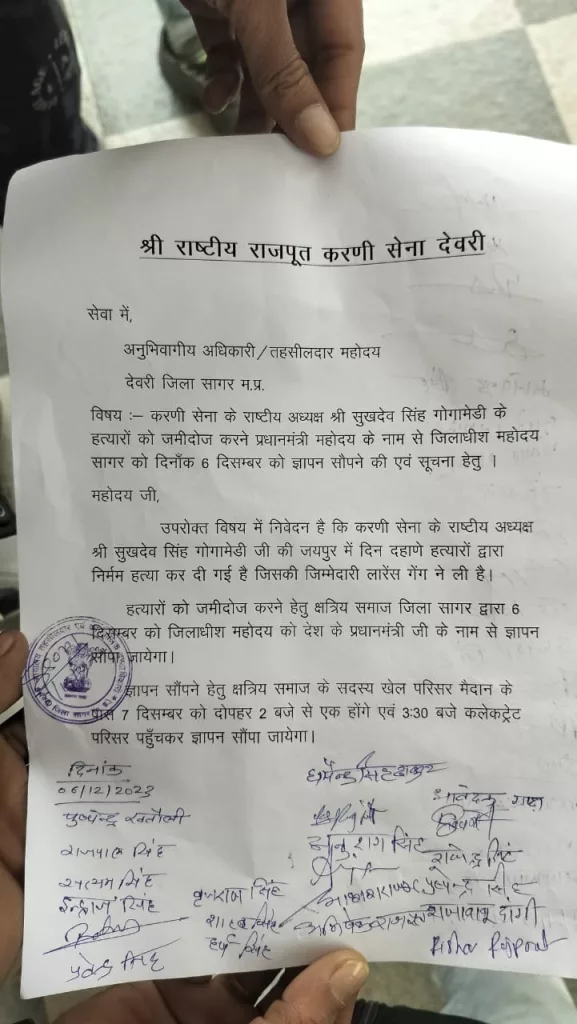 श्री राष्टीय राजपूत करणी सेना देवरी
सेवा में,
अनुभिवागीय अधिकारी/तहसीलदार महोदय
देवरी जिला सागर म.प्र.
विषय :– करणी सेना के राष्टीय अध्यक्ष श्री सुखदेव सिंह गोगामेडी के
हत्यारों को जमीदोज करने प्रधानमंत्री महोदय के नाम से जिलाधीश महोदय
सागर को दिनाँक 6 दिसम्बर को ज्ञापन सौपने की एवं सूचना हेतु ।
महोदय जी,
उपरोक्त विषय में निवेदन है कि करणी सेना के राष्टीय अध्यक्ष
श्री सुखदेव सिंह गोगामेडी जी की जयपुर में दिन दहाणे हत्यारों द्वारा
निर्मम हत्या कर दी गई है जिसकी जिम्मेदारी लारेंस गेंग ने ली है।
हत्यारों को जमीदोज करने हेतु क्षत्रिय समाज जिला सागर द्वारा 6
दिसम्बर को जिलाधीश महोदय को देश के प्रधानमंत्री जी के नाम से ज्ञापन
सौंपा जायेगा।
ज्ञापन सौंपने हेतु क्षत्रिय समाज के सदस्य खेल परिसर मैदान के
पास 7 दिसम्बर को दोपहर 2 बजे से एक होंगे एवं 3:30 बजे कलेक्ट्रेट
परिसर पहुँचकर ज्ञापन सौंपा जायेगा।
दिनांक
06/12/2023
धर्मेन्द्र सिंह ठाकुर
पुष्पेन्द्र
राजपाल सिंह
अनुराग सिंह
राजेन्द्र सिंह
सत्यम सिंह
पुष्पेन्द्र सिंह
वृजराज सिंह
हर्ष सिंह